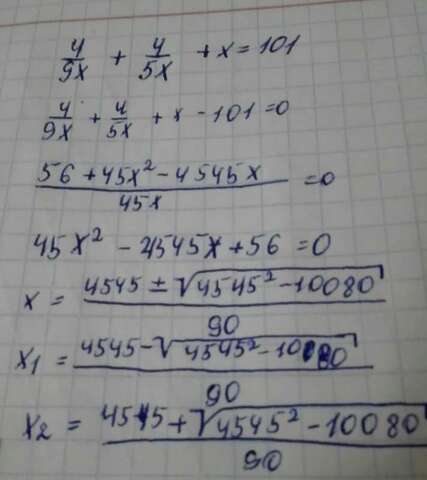 4/9x + 4/5x + x = 101
4/9x + 4/5x + x - 101 = 0
56 + 45x² - 4545x / 45x = 0
45x² - 4545x + 56 = 0
x = 4545 ± √4545² - 10080 / 90
x₁ = 4545 - √4545² - 10080 / 90
x₂ = 4545 + √4545² - 10080 / 90